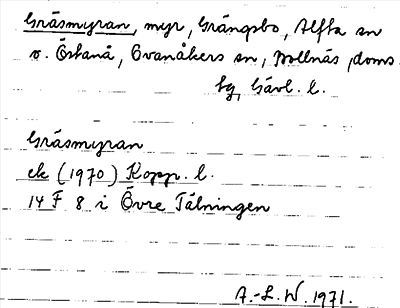 Gräsmyran, myr, Grängsbo, Alfta sn
o. Östanå, Ovanåkers sn, Bollnäs doms.
tg, Gävl. l.
Gräsmyran
ek (1970) Kopp. l.
14 F 8 i Övre Tälningen
A.-L.W. 1971.